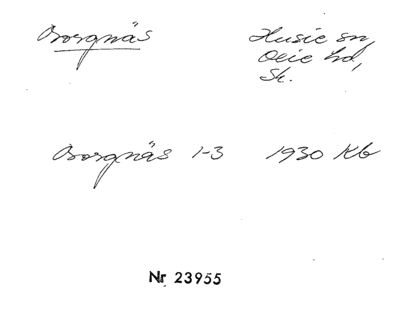 Borgnäs
Husie sn,
Oxie hd,
Sk.
Borgnäs 1-3 1930 Kb
Nr 23955